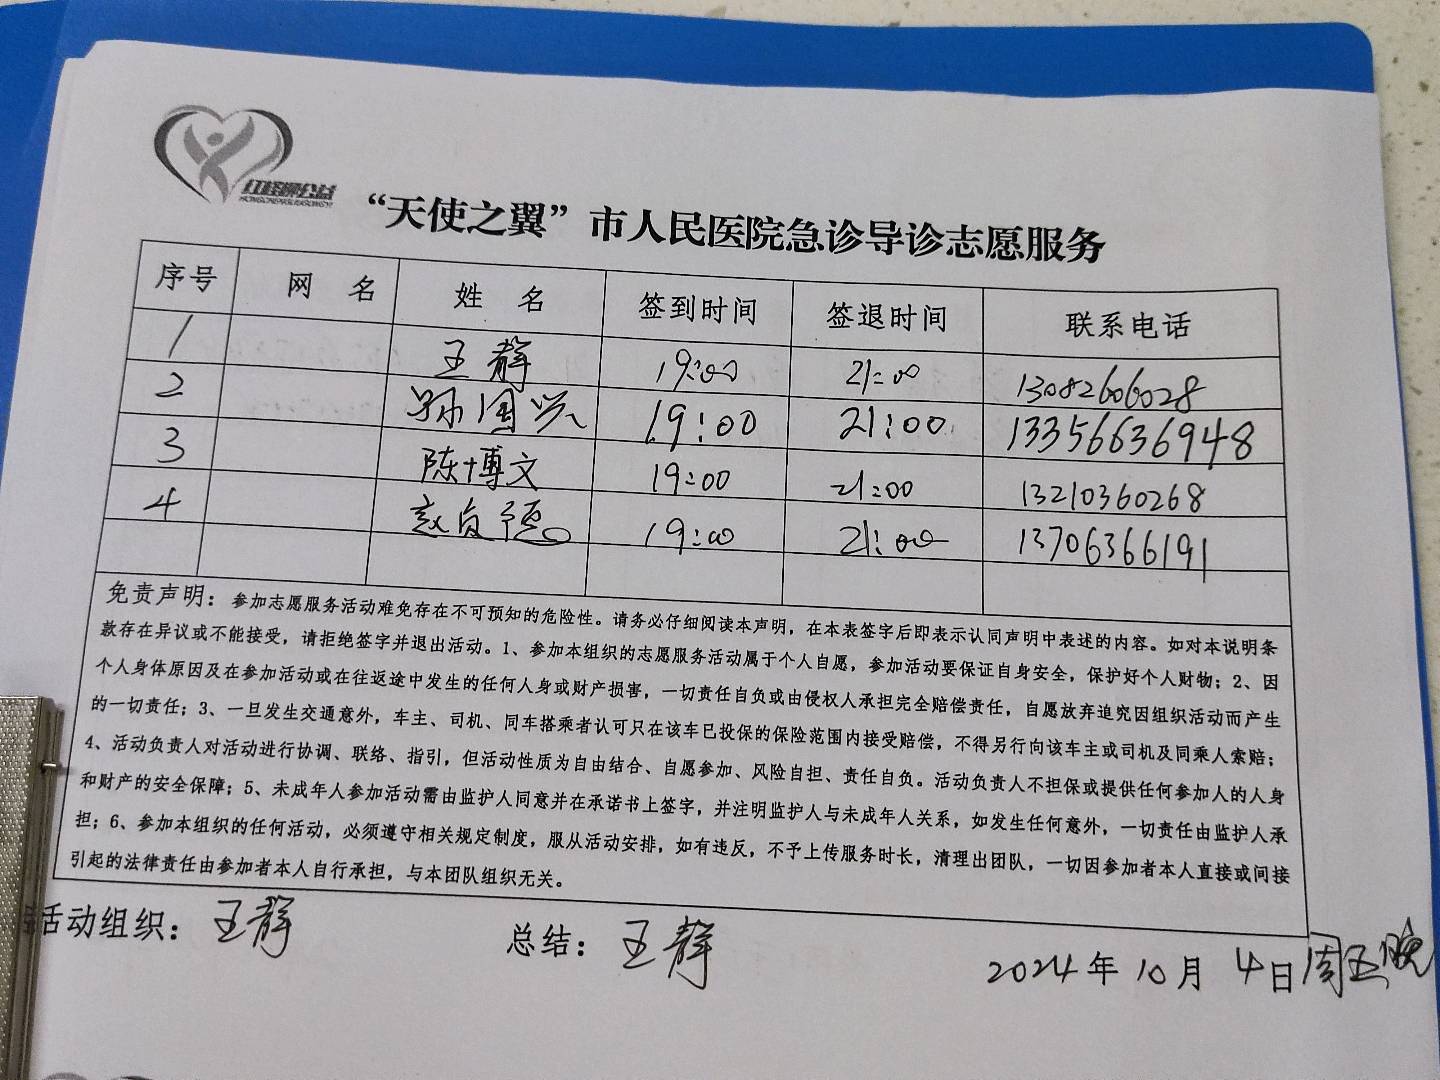 红柽柳公益
“天使之翼”市人民医院急诊导诊志愿服务
序号 网 名 姓 名 签到时间 签退时间 联系电话
1 王静 19:00 21:00 13082606028
2 孙国兴 19:00 21:00 13356636948
3 陈博文 19:00 21:00 13210360268
4 赵 19:00 21:00 13706366191
免责声明：参加志愿服务活动难免存在不可预知的危险性。请务必仔细阅读本声明，在本表签字后即表示认同声明中表述的内容。如对本说明条
款存在异议或不能接受，请拒绝签字并退出活动。1、参加本组织的志愿服务活动属于个人自愿，参加活动要保证自身安全，保护好个人财物；2、因
个人身体原因及在参加活动或在往返途中发生的任何人身或财产损害，一切责任自负或由侵权人承担完全赔偿责任，自愿放弃追究因组织活动而产生
的一切责任；3、一旦发生交通意外，车主、司机、同车搭乘者认可只在该车已投保的保险范围内接受赔偿，不得另行向该车主或司机及同乘人索赔；
4、活动负责人对活动进行协调、联络、指引，但活动性质为自由结合、自愿参加、风险自担、责任自负。活动负责人不担保或提供任何参加人的人身
和财产的安全保障；5、未成年人参加活动需由监护人同意并在承诺书上签字，并注明监护人与未成年人关系，如发生任何意外，一切责任由监护人承
担；6、参加本组织的任何活动，必须遵守相关规定制度，服从活动安排，如有违反，不予上传服务时长，清理出团队，一切因参加者本人直接或间接
引起的法律责任由参加者本人自行承担，与本团队组织无关。
活动组织：王静 总结：王静 2024年10月4日周五晚